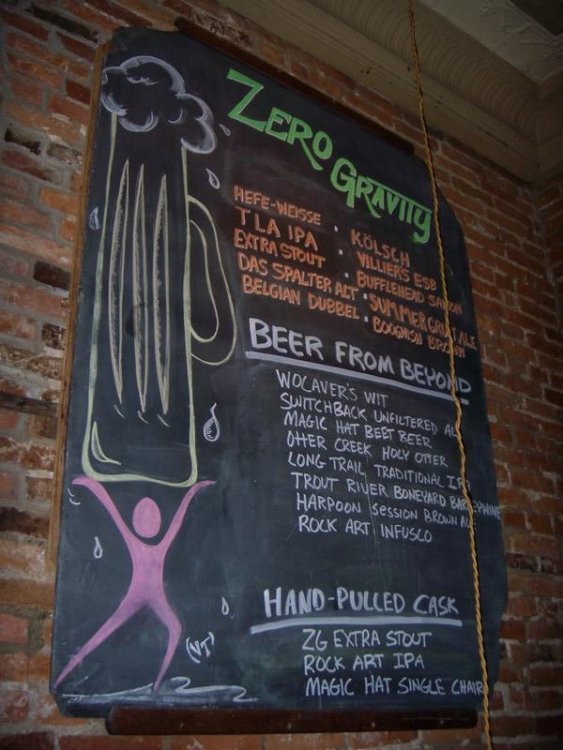 ZERO GRAVITY
HEFE-WEISSE · KÖLSCH
TLA IPA · VILLIER'S ESB
EXTRA STOUT · BUFFLEHEAD
DAS SPALTER ALT · SUMMER GRUIT ALE
BELGIAN DUBBEL · BOOGNISH BROWN
BEER FROM BEYOND
WOLAVER'S WIT
SWITCHBACK UNFILTERED AL
MAGIC HAT BEET BEER
OTTER CREEK HOLY OTTER
LONG TRAIL TRADITIONAL IPA
TROUT RIVER BONEYARD BARLEYWINE
HARPOON SESSION BROWN AL
ROCK ART INFUSCO
HAND-PULLED CASK
ZG EXTRA STOUT
ROCK ART IPA
MAGIC HAT SINGLE CHAIR
(VT)